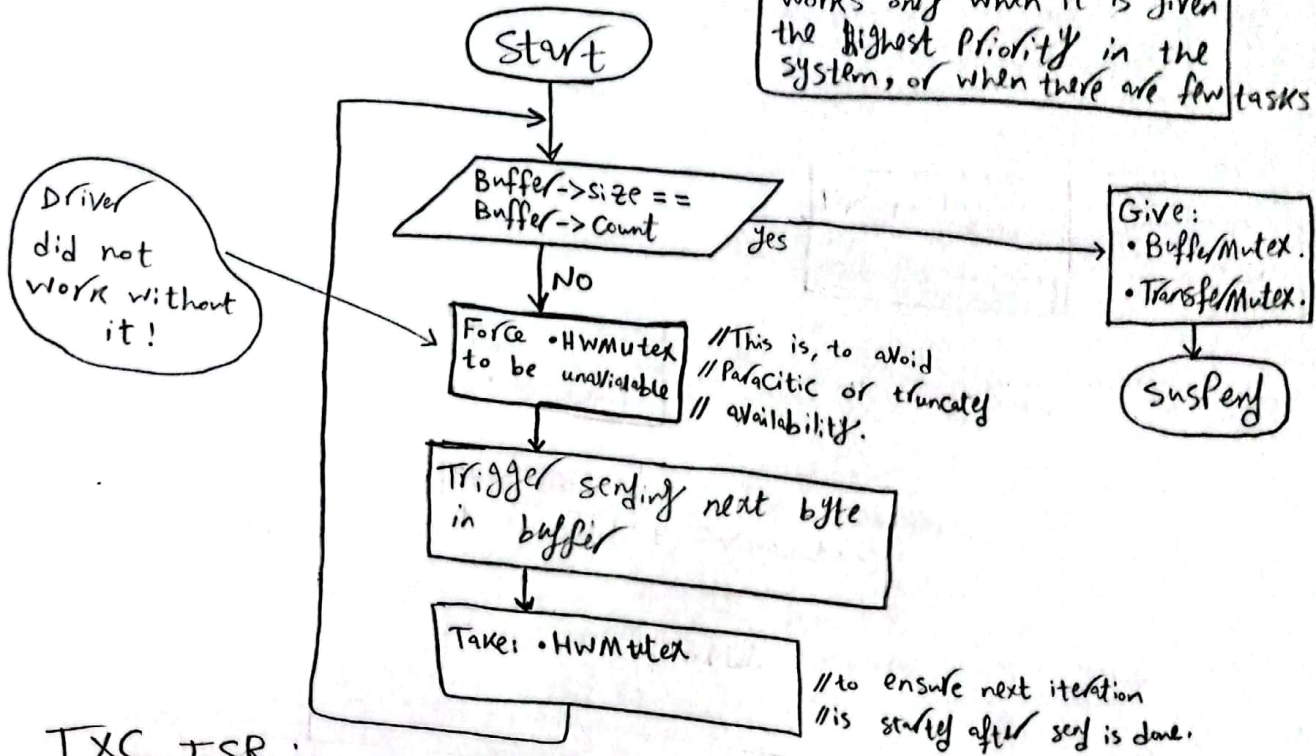 works only when it is given
the Highest Priority in the
system, or when there are few tasks
Start
Buffer->size ==
Buffer->Count
Yes
Give:
• BufferMutex.
• TransferMutex.
Suspend
NO
Driver
did not
work without
it!
Force • HWMutex
to be unavialable
//This is, to avoid
//Paracitic or truncated
// availability.
Trigger sending next byte
in buffer
Take: • HWMutex
//to ensure next iteration
//is started after send is done.
TXC ISR: